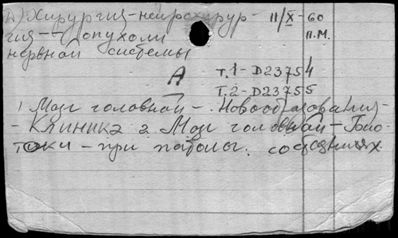 А) Хирургия-нейрохирур- 11/X-60
гия-- опухоли П.М.
нервной системы
А Т.1-D23754
Т.2-D23755
1 Мозг головной - Новообразования -
- Клиника 2 Мозг головной - Био-
токи - при патолог. состояниях